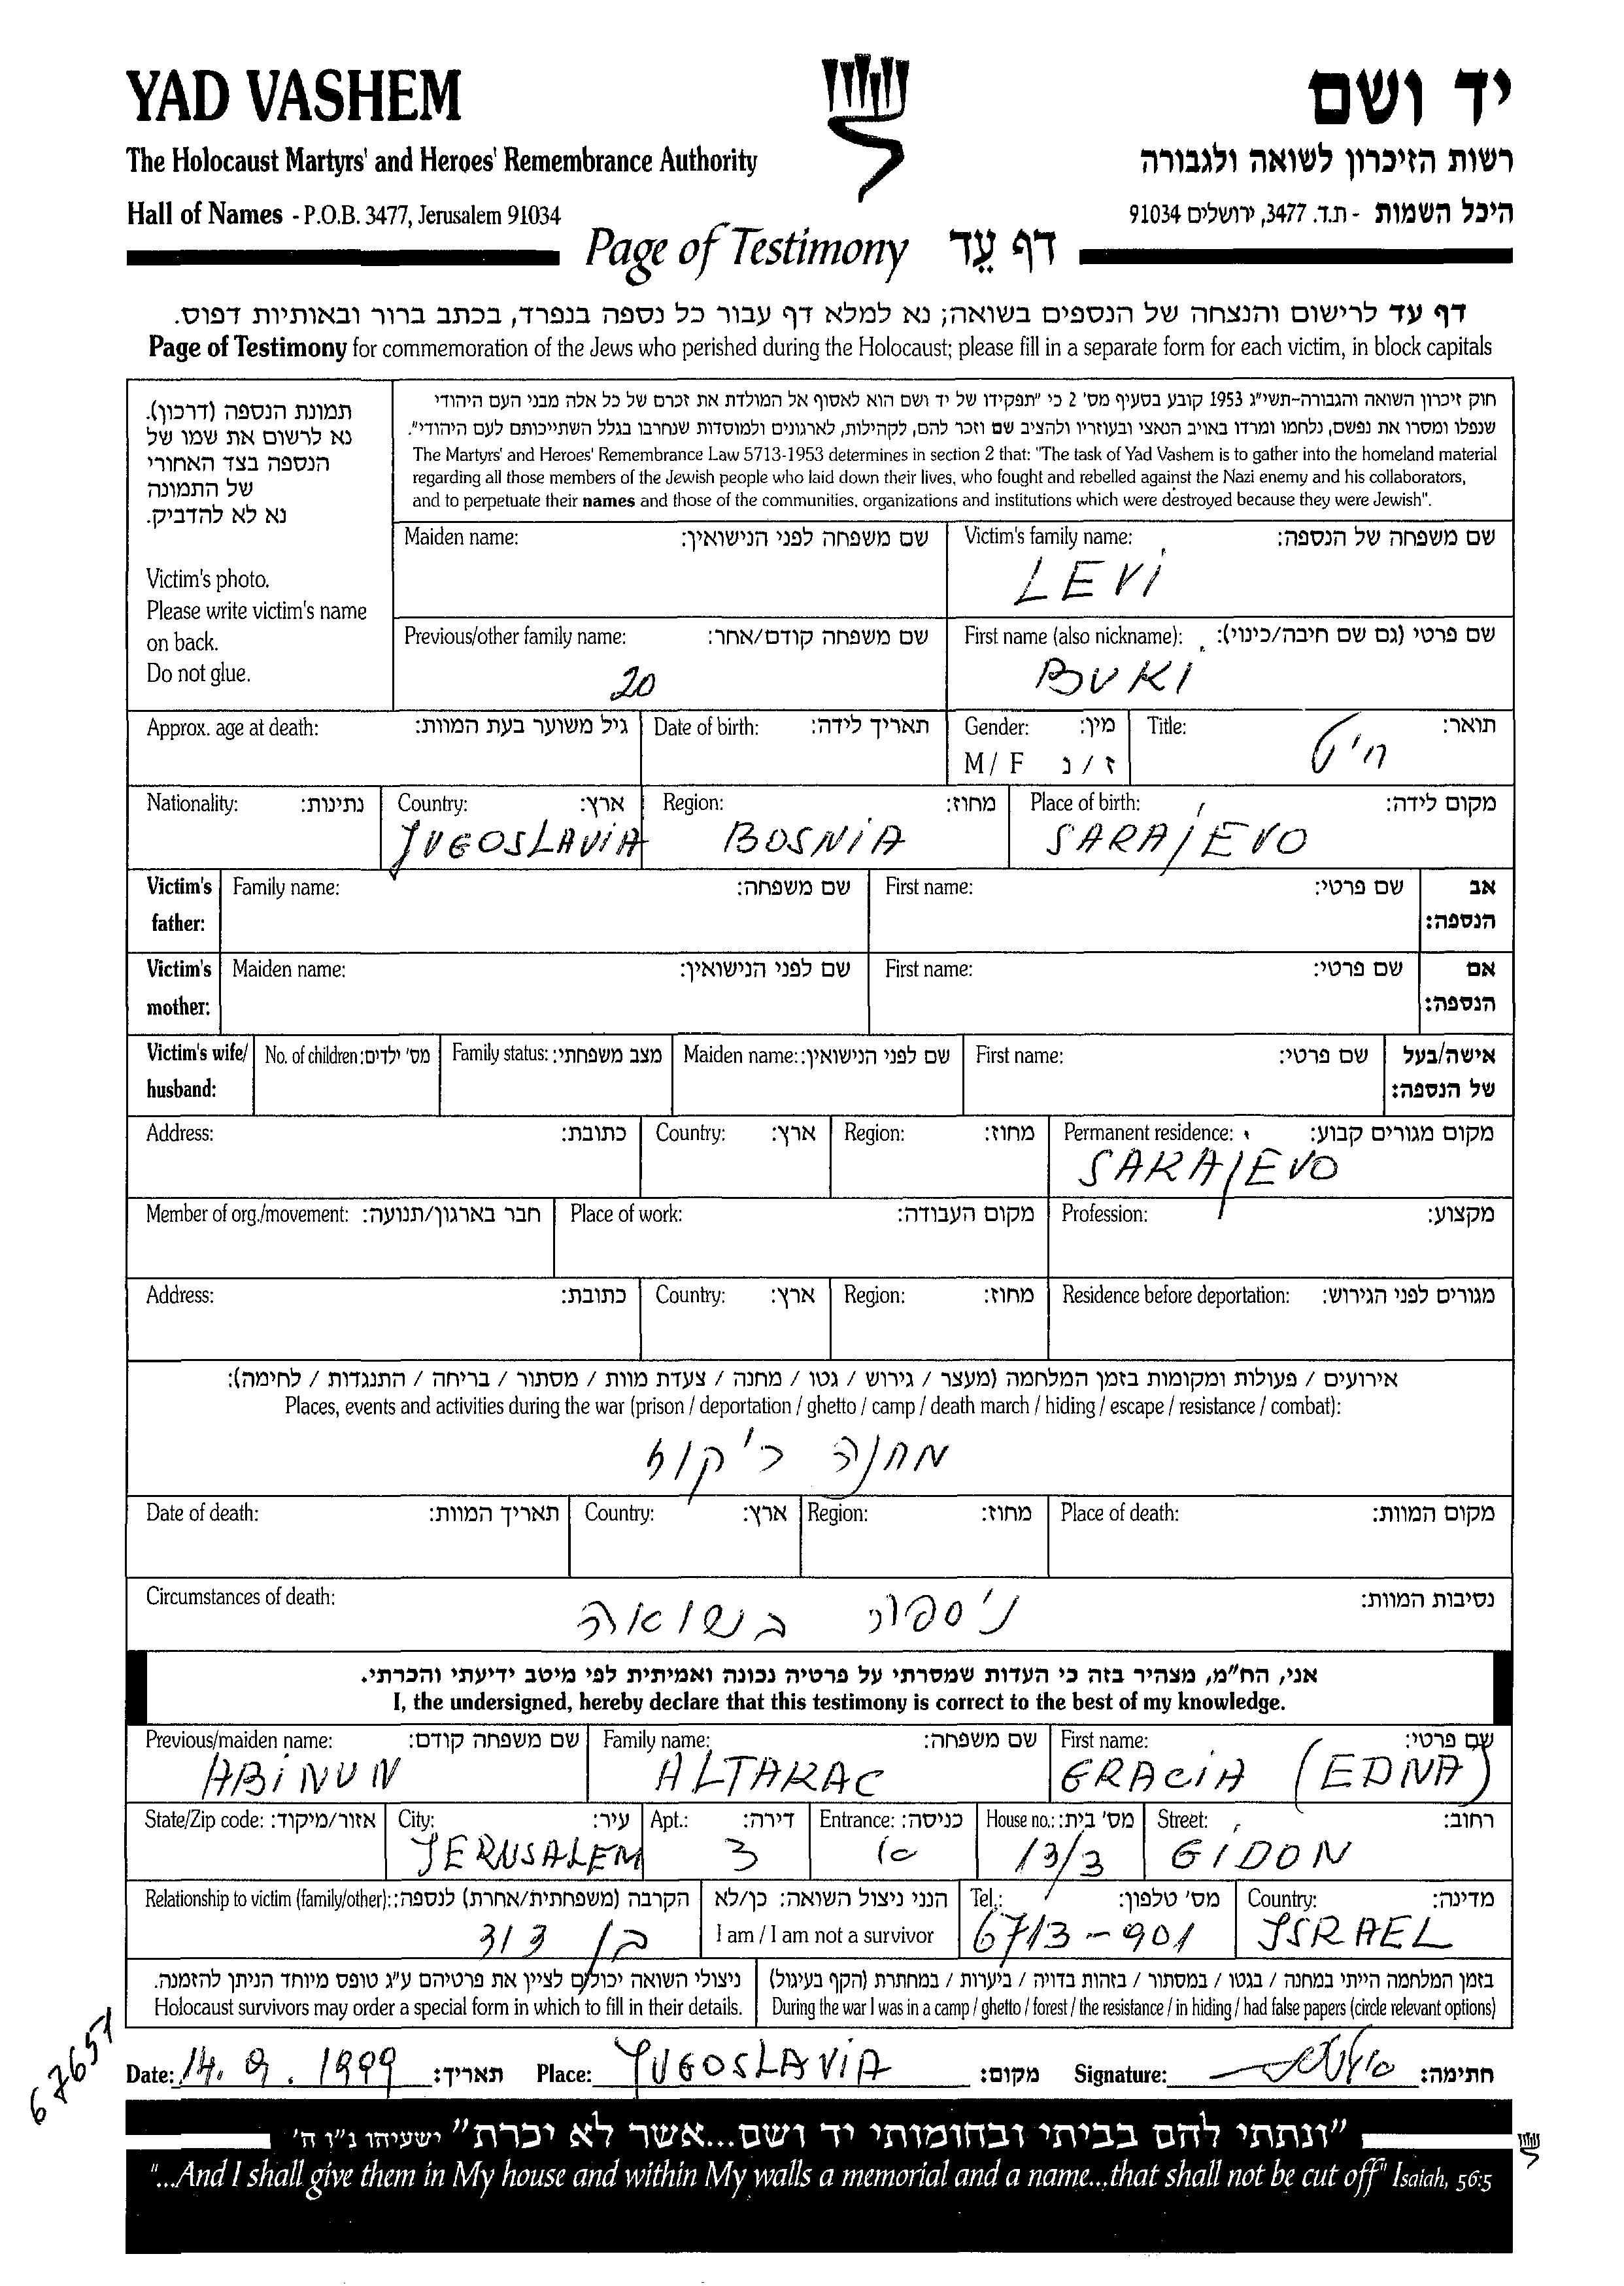 YAD VASHEM
יד ושם
The Holocaust Martyrs' and Heroes' Remembrance Authority
רשות הזיכרון לשואה ולגבורה
Hall of Names - P.O.B. 3477, Jerusalem 91034
היכל השמות - ת.ד. 3477, ירושלים 91034
Page of Testimony דף עֵד
דף עד לרישום והנצחה של הנספים בשואה; נא למלא דף עבור כל נספה בנפרד, בכתב ברור ובאותיות דפוס.
Page of Testimony for commemoration of the Jews who perished during the Holocaust; please fill in a separate form for each victim, in block capitals
תמונת הנספה (דרכון).
נא לרשום את שמו של
הנספה בצד האחורי
של התמונה
נא לא להדביק.
Victim's photo.
Please write victim's name
on back.
Do not glue.
חוק זיכרון השואה והגבורה-תשי"ג 1953 קובע בסעיף מס' 2 כי "תפקידו של יד ושם הוא לאסוף אל המולדת את זכרם של כל אלה מבני העם היהודי
שנפלו ומסרו את נפשם, נלחמו ומרדו באויב הנאצי ובעוזריו ולהציב שם וזכר להם, לקהילות, לארגונים ולמוסדות שנחרבו בגלל השתייכותם לעם היהודי".
The Martyrs' and Heroes' Remembrance Law 5713-1953 determines in section 2 that: "The task of Yad Vashem is to gather into the homeland material
regarding all those members of the Jewish people who laid down their lives, who fought and rebelled against the Nazi enemy and his collaborators,
and to perpetuate their names and those of the communities, organizations and institutions which were destroyed because they were Jewish".
Maiden name: שם משפחה לפני הנישואין:
Victim's family name: שם משפחה של הנספה:
LEVI
Previous/other family name: שם משפחה קודם/אחר:
First name (also nickname): שם פרטי (גם שם חיבה/כינוי):
20
BUKI
Approx. age at death: גיל משוער בעת המוות:
Date of birth: תאריך לידה:
Gender: מין:
M / F ז / נ
Title: תואר:
Nationality: נתינות:
Country: ארץ:
Region: מחוז:
Place of birth: מקום לידה:
JUGOSLAVIA BOSNIA SARAJEVO
Victim's father: Family name: שם משפחה: First name: שם פרטי: אב הנספה:
Victim's mother: Maiden name: שם לפני הנישואין: First name: שם פרטי: אם הנספה:
Victim's wife/husband: No. of children: מס' ילדים: Family status: מצב משפחתי: Maiden name: שם לפני הנישואין: First name: שם פרטי: אישה/בעל של הנספה:
Address: כתובת: Country: ארץ: Region: מחוז: Permanent residence: מקום מגורים קבוע:
SARAJEVO
Member of org./movement: חבר בארגון/תנועה: Place of work: מקום העבודה: Profession: מקצוע:
Address: כתובת: Country: ארץ: Region: מחוז: Residence before deportation: מגורים לפני הגירוש:
אירועים / פעולות ומקומות בזמן המלחמה (מעצר / גירוש / גטו / מחנה / צעדת מוות / מסתור / בריחה / התנגדות / לחימה):
Places, events and activities during the war (prison / deportation / ghetto / camp / death march / hiding / escape / resistance / combat):
מחנה
Date of death: תאריך המוות: Country: ארץ: Region: מחוז: Place of death: מקום המוות:
Circumstances of death: נסיבות המוות:
בשואה
אני, הח"מ, מצהיר בזה כי העדות שמסרתי על פרטיה נכונה ואמיתית לפי מיטב ידיעתי והכרתי.
I, the undersigned, hereby declare that this testimony is correct to the best of my knowledge.
Previous/maiden name: שם משפחה קודם: Family name: שם משפחה: First name: שם פרטי:
ABINUN ALTARAC GRACIA (EDNA)
State/Zip code: אזור/מיקוד: City: עיר: Apt.: דירה: Entrance: כניסה: House no.: מס' בית: Street: רחוב:
JERUSALEM 3 13/3 GIDON
Relationship to victim (family/other): הקרבה (משפחתית/אחרת) לנספה: הנני ניצול השואה: כן/לא Tel.: מס' טלפון: Country: מדינה:
I am / I am not a survivor
בן דוד 6713-901 ISRAEL
ניצולי השואה יכולים לציין את פרטיהם ע"ג טופס מיוחד הניתן להזמנה.
Holocaust survivors may order a special form in which to fill in their details.
בזמן המלחמה הייתי במחנה / בגטו / במסתור / בזהות בדויה / ביערות / במחתרת (הקף בעיגול)
During the war I was in a camp / ghetto / forest / the resistance / in hiding / had false papers (circle relevant options)
67651
Date: 14.9.1999 תאריך: Place: JUGOSLAVIA מקום: Signature: חתימה:
"ונתתי להם בביתי ובחומותי יד ושם...אשר לא יכרת" ישעיהו נ"ו ה'
"...And I shall give them in My house and within My walls a memorial and a name...that shall not be cut off" Isaiah, 56:5